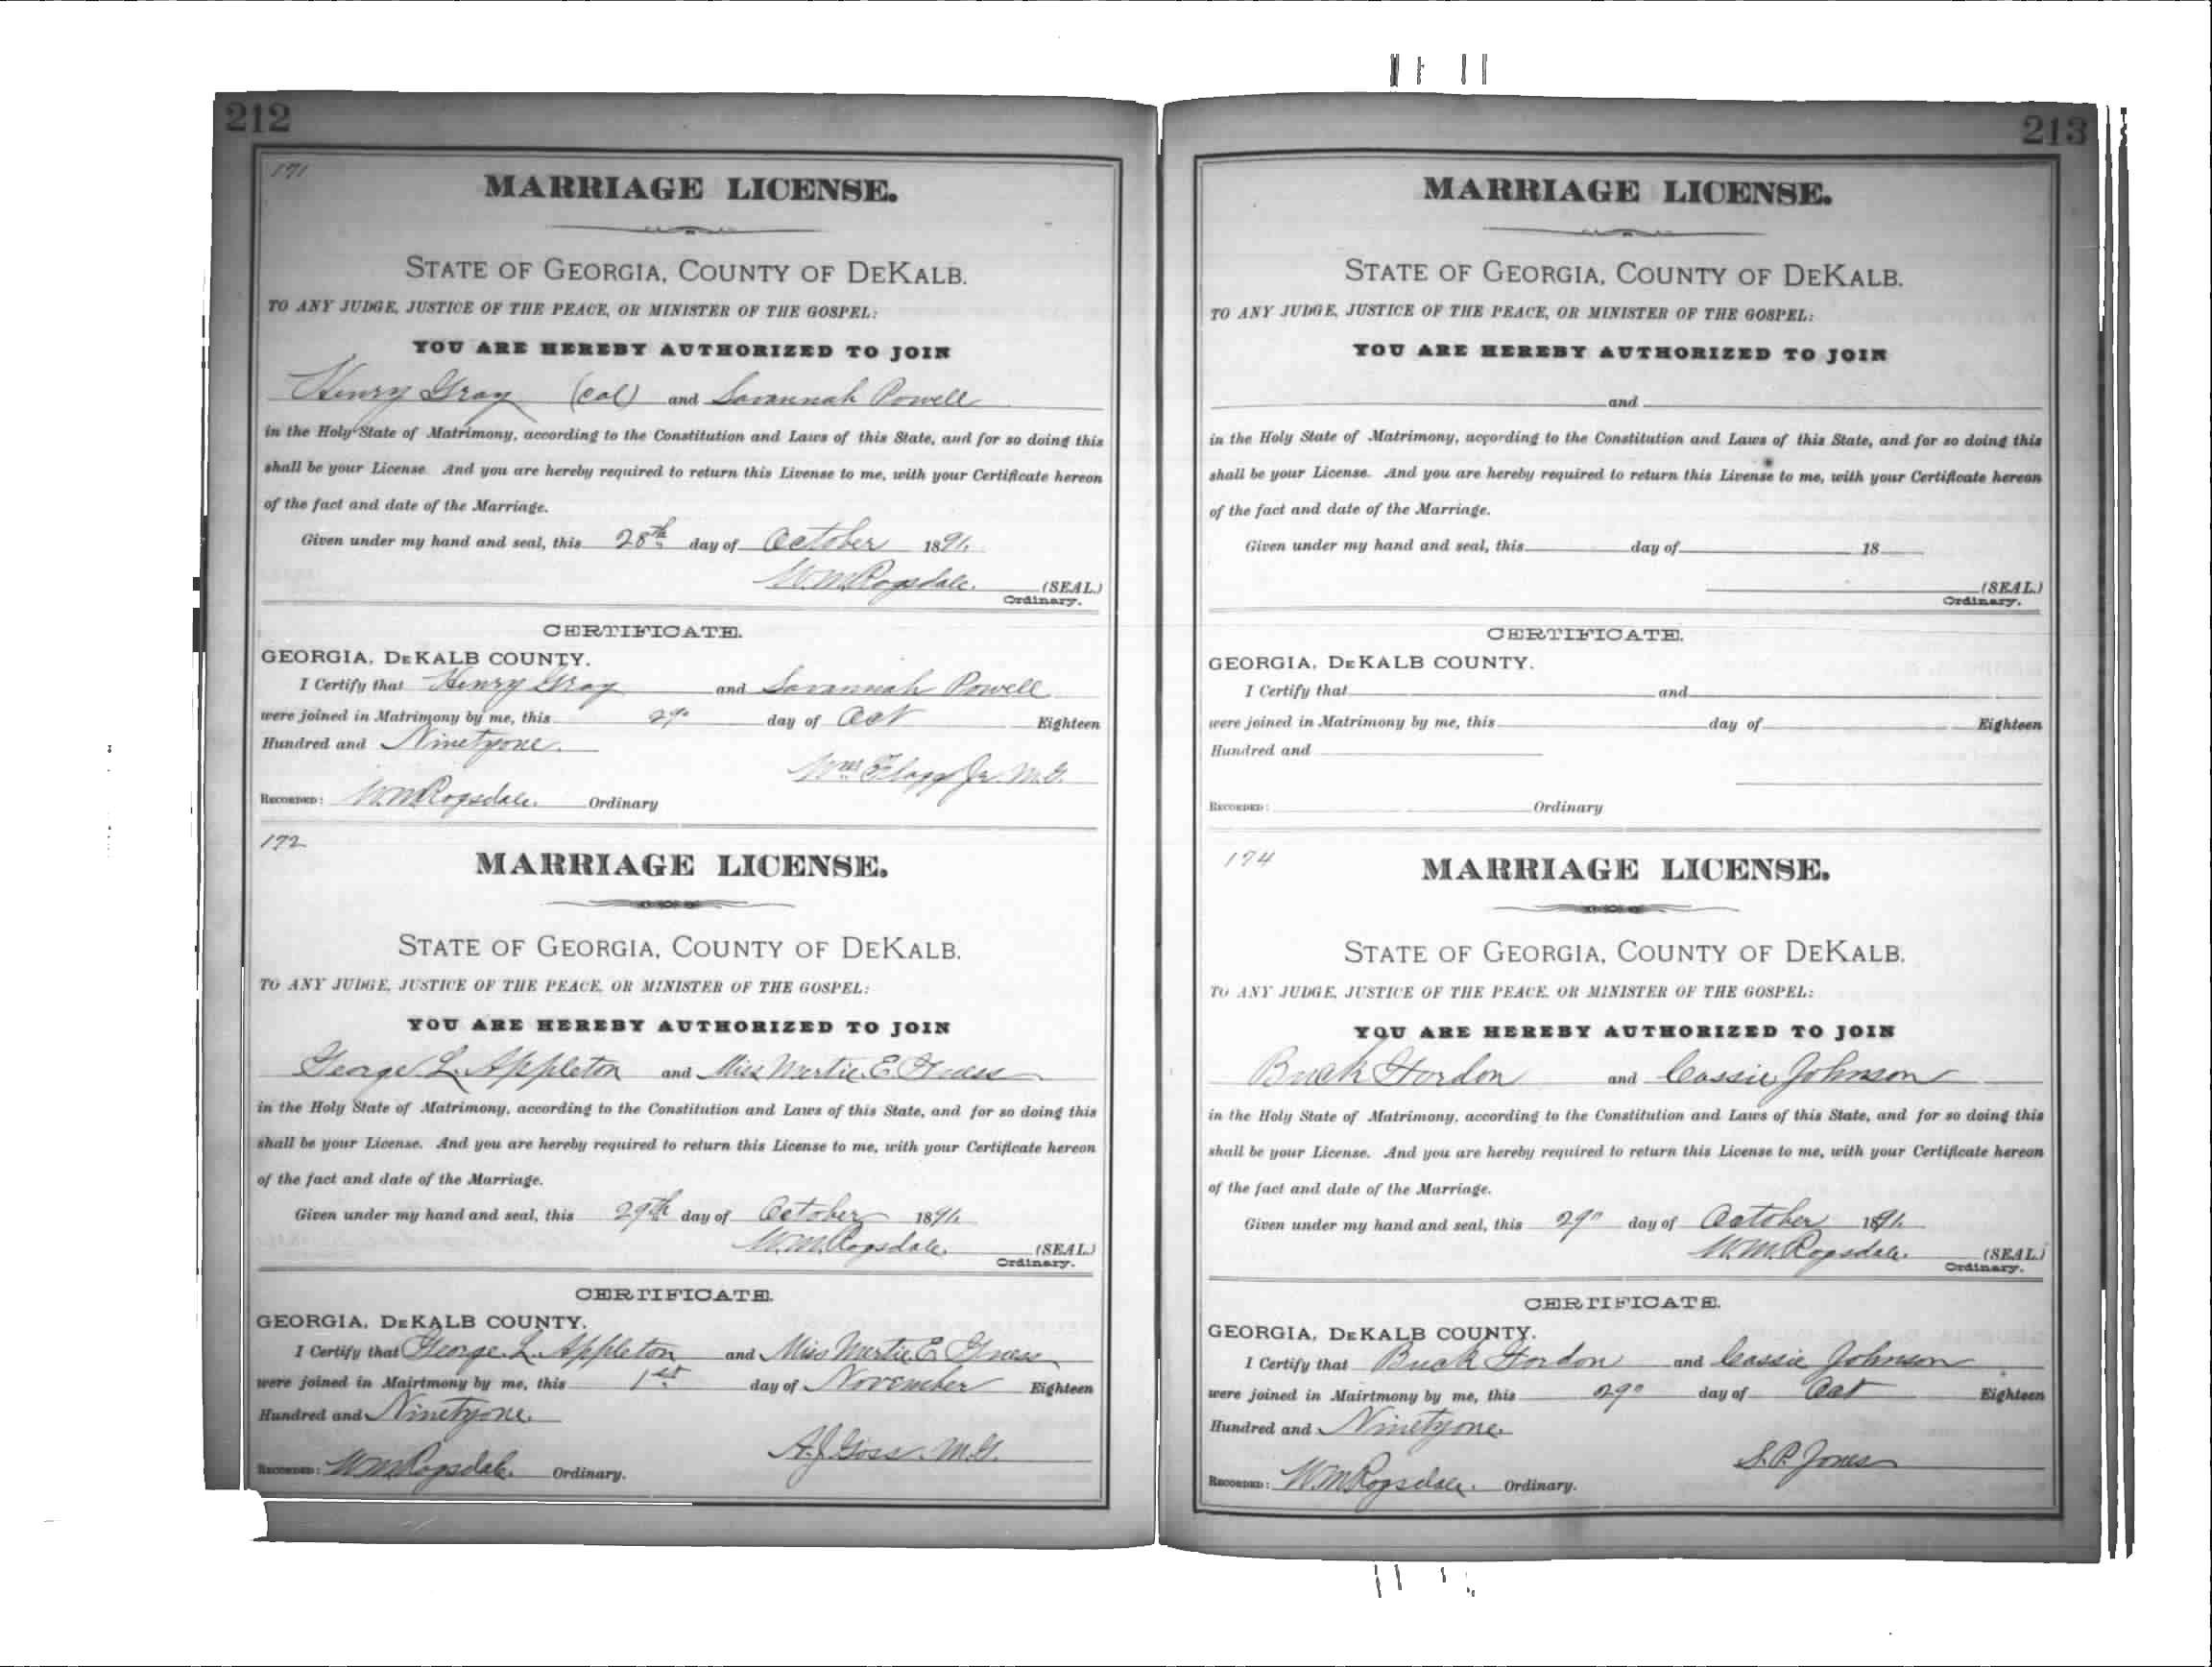 212
171
MARRIAGE LICENSE.
STATE OF GEORGIA, COUNTY OF DEKALB.
TO ANY JUDGE, JUSTICE OF THE PEACE, OR MINISTER OF THE GOSPEL:
YOU ARE HEREBY AUTHORIZED TO JOIN
Henry Gray (Col) and Savannah Powell
in the Holy State of Matrimony, according to the Constitution and Laws of this State, and for so doing this
shall be your License. And you are hereby required to return this License to me, with your Certificate hereon
of the fact and date of the Marriage.
Given under my hand and seal, this 28th day of October 1891.
W.M. Ragsdale. (SEAL.)
Ordinary.
CERTIFICATE.
GEORGIA, DEKALB COUNTY.
I Certify that Henry Gray and Savannah Powell
were joined in Matrimony by me, this 29" day of Oct Eighteen
Hundred and Ninetyone.
Wm Flagg Jr. M.G.
RECORDED: W.M. Ragsdale. Ordinary
172
MARRIAGE LICENSE.
STATE OF GEORGIA, COUNTY OF DEKALB.
TO ANY JUDGE, JUSTICE OF THE PEACE, OR MINISTER OF THE GOSPEL:
YOU ARE HEREBY AUTHORIZED TO JOIN
George L. Appleton and Miss Mertie E.
in the Holy State of Matrimony, according to the Constitution and Laws of this State, and for so doing this
shall be your License. And you are hereby required to return this License to me, with your Certificate hereon
of the fact and date of the Marriage.
Given under my hand and seal, this 29th day of October 1891.
W.M. Ragsdale. (SEAL.)
Ordinary.
CERTIFICATE.
GEORGIA, DEKALB COUNTY.
I Certify that George L. Appleton and Miss Mertie E
were joined in Mairtmony by me, this 1st day of November Eighteen
Hundred and Ninetyone.
A.J. Goss. M.G.
RECORDED: W.M. Ragsdale. Ordinary.
213
MARRIAGE LICENSE.
STATE OF GEORGIA, COUNTY OF DEKALB.
TO ANY JUDGE, JUSTICE OF THE PEACE, OR MINISTER OF THE GOSPEL:
YOU ARE HEREBY AUTHORIZED TO JOIN
and
in the Holy State of Matrimony, according to the Constitution and Laws of this State, and for so doing this
shall be your License. And you are hereby required to return this License to me, with your Certificate hereon
of the fact and date of the Marriage.
Given under my hand and seal, this day of 18
(SEAL.)
Ordinary.
CERTIFICATE.
GEORGIA, DEKALB COUNTY.
I Certify that and
were joined in Matrimony by me, this day of Eighteen
Hundred and
RECORDED: Ordinary
174
MARRIAGE LICENSE.
STATE OF GEORGIA, COUNTY OF DEKALB.
TO ANY JUDGE, JUSTICE OF THE PEACE, OR MINISTER OF THE GOSPEL:
YOU ARE HEREBY AUTHORIZED TO JOIN
Buck Gordon and Cassie Johnson
in the Holy State of Matrimony, according to the Constitution and Laws of this State, and for so doing this
shall be your License. And you are hereby required to return this License to me, with your Certificate hereon
of the fact and date of the Marriage.
Given under my hand and seal, this 29" day of October 1891.
W.M. Ragsdale. (SEAL.)
Ordinary.
CERTIFICATE.
GEORGIA, DEKALB COUNTY.
I Certify that Buck Gordon and Cassie Johnson
were joined in Mairtmony by me, this 29" day of Oct Eighteen
Hundred and Ninetyone.
S.P. Jones
RECORDED: W.M. Ragsdale. Ordinary.